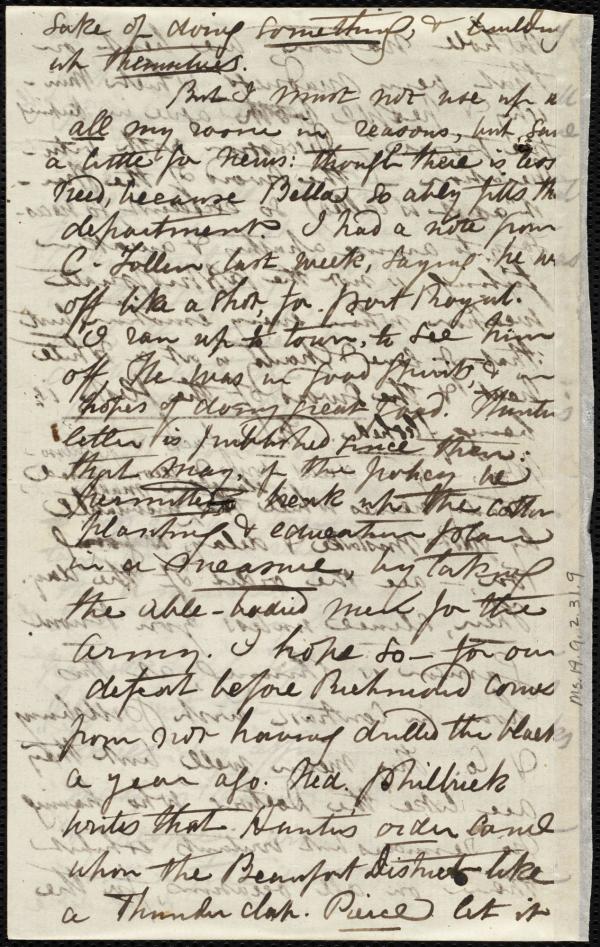 sake of doing something, & building
up themselves.
But I must not use up
all my room in reasons, but save
a little for news: though there is less
need, because Bella so ably fills th
department. I had a note from
C. Follen, last week, saying he was
off like a shot, for Port Royal.
I ran up to town, to see him
off, He was in good spirits, &
hopes of doing great good. Hunter's
letter is published since then:
that may, if the policy be
permitted break up the cotton
planting & education plan
in a measure, by taking
the able-bodied men for the
army. I hope so - for our
defeat before Richmond comes
from not having drilled the black
a year ago. Ned. Philbrick
writes that Hunter's order came
upon the Beaufort District like
a Thunder clap. Pierce let it
Ms.A.9.2.31.9